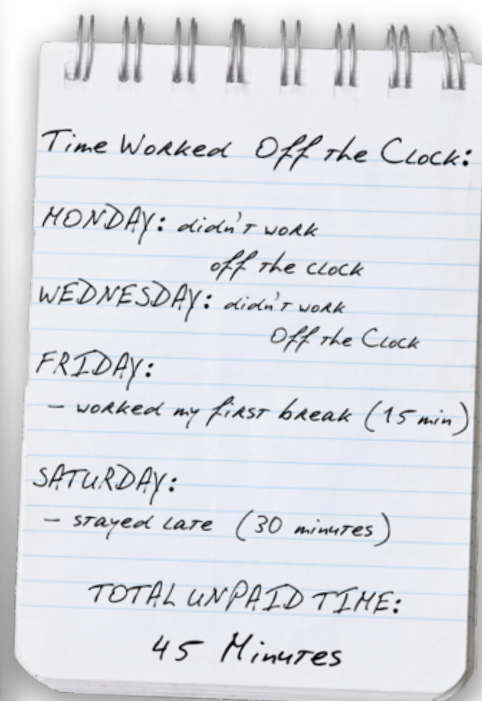 Time Worked Off the Clock:
MONDAY: didn't work
off the clock
WEDNESDAY: didn't work
Off the Clock
FRIDAY:
- worked my first break (15 min)
SATURDAY:
- stayed late (30 minutes)
TOTAL UNPAID TIME:
45 Minutes